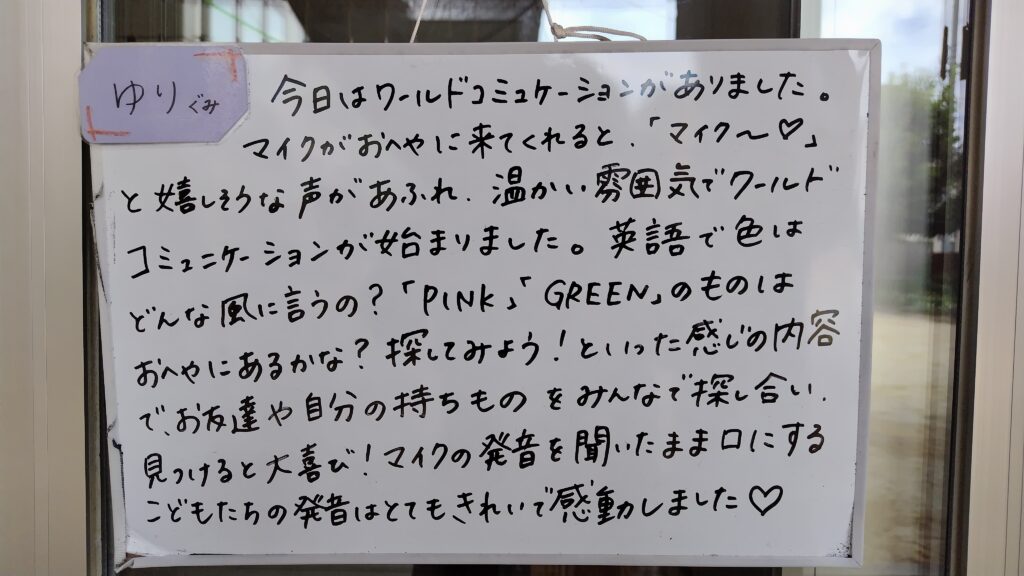 ゆりぐみ
今日はワールドコミュケーションがありました。
マイクがおへやに来てくれると、「マイク〜♡」
と嬉しそうな声があふれ、温かい雰囲気でワールド
コミュニケーションが始まりました。英語で色は
どんな風に言うの?「PINK」「GREEN」のものは
おへやにあるかな?探してみよう!といった感じの内容
で、お友達や自分の持ちものをみんなで探し合い、
見つけると大喜び!マイクの発音を聞いたまま口にする
こどもたちの発音はとてもきれいで感動しました♡